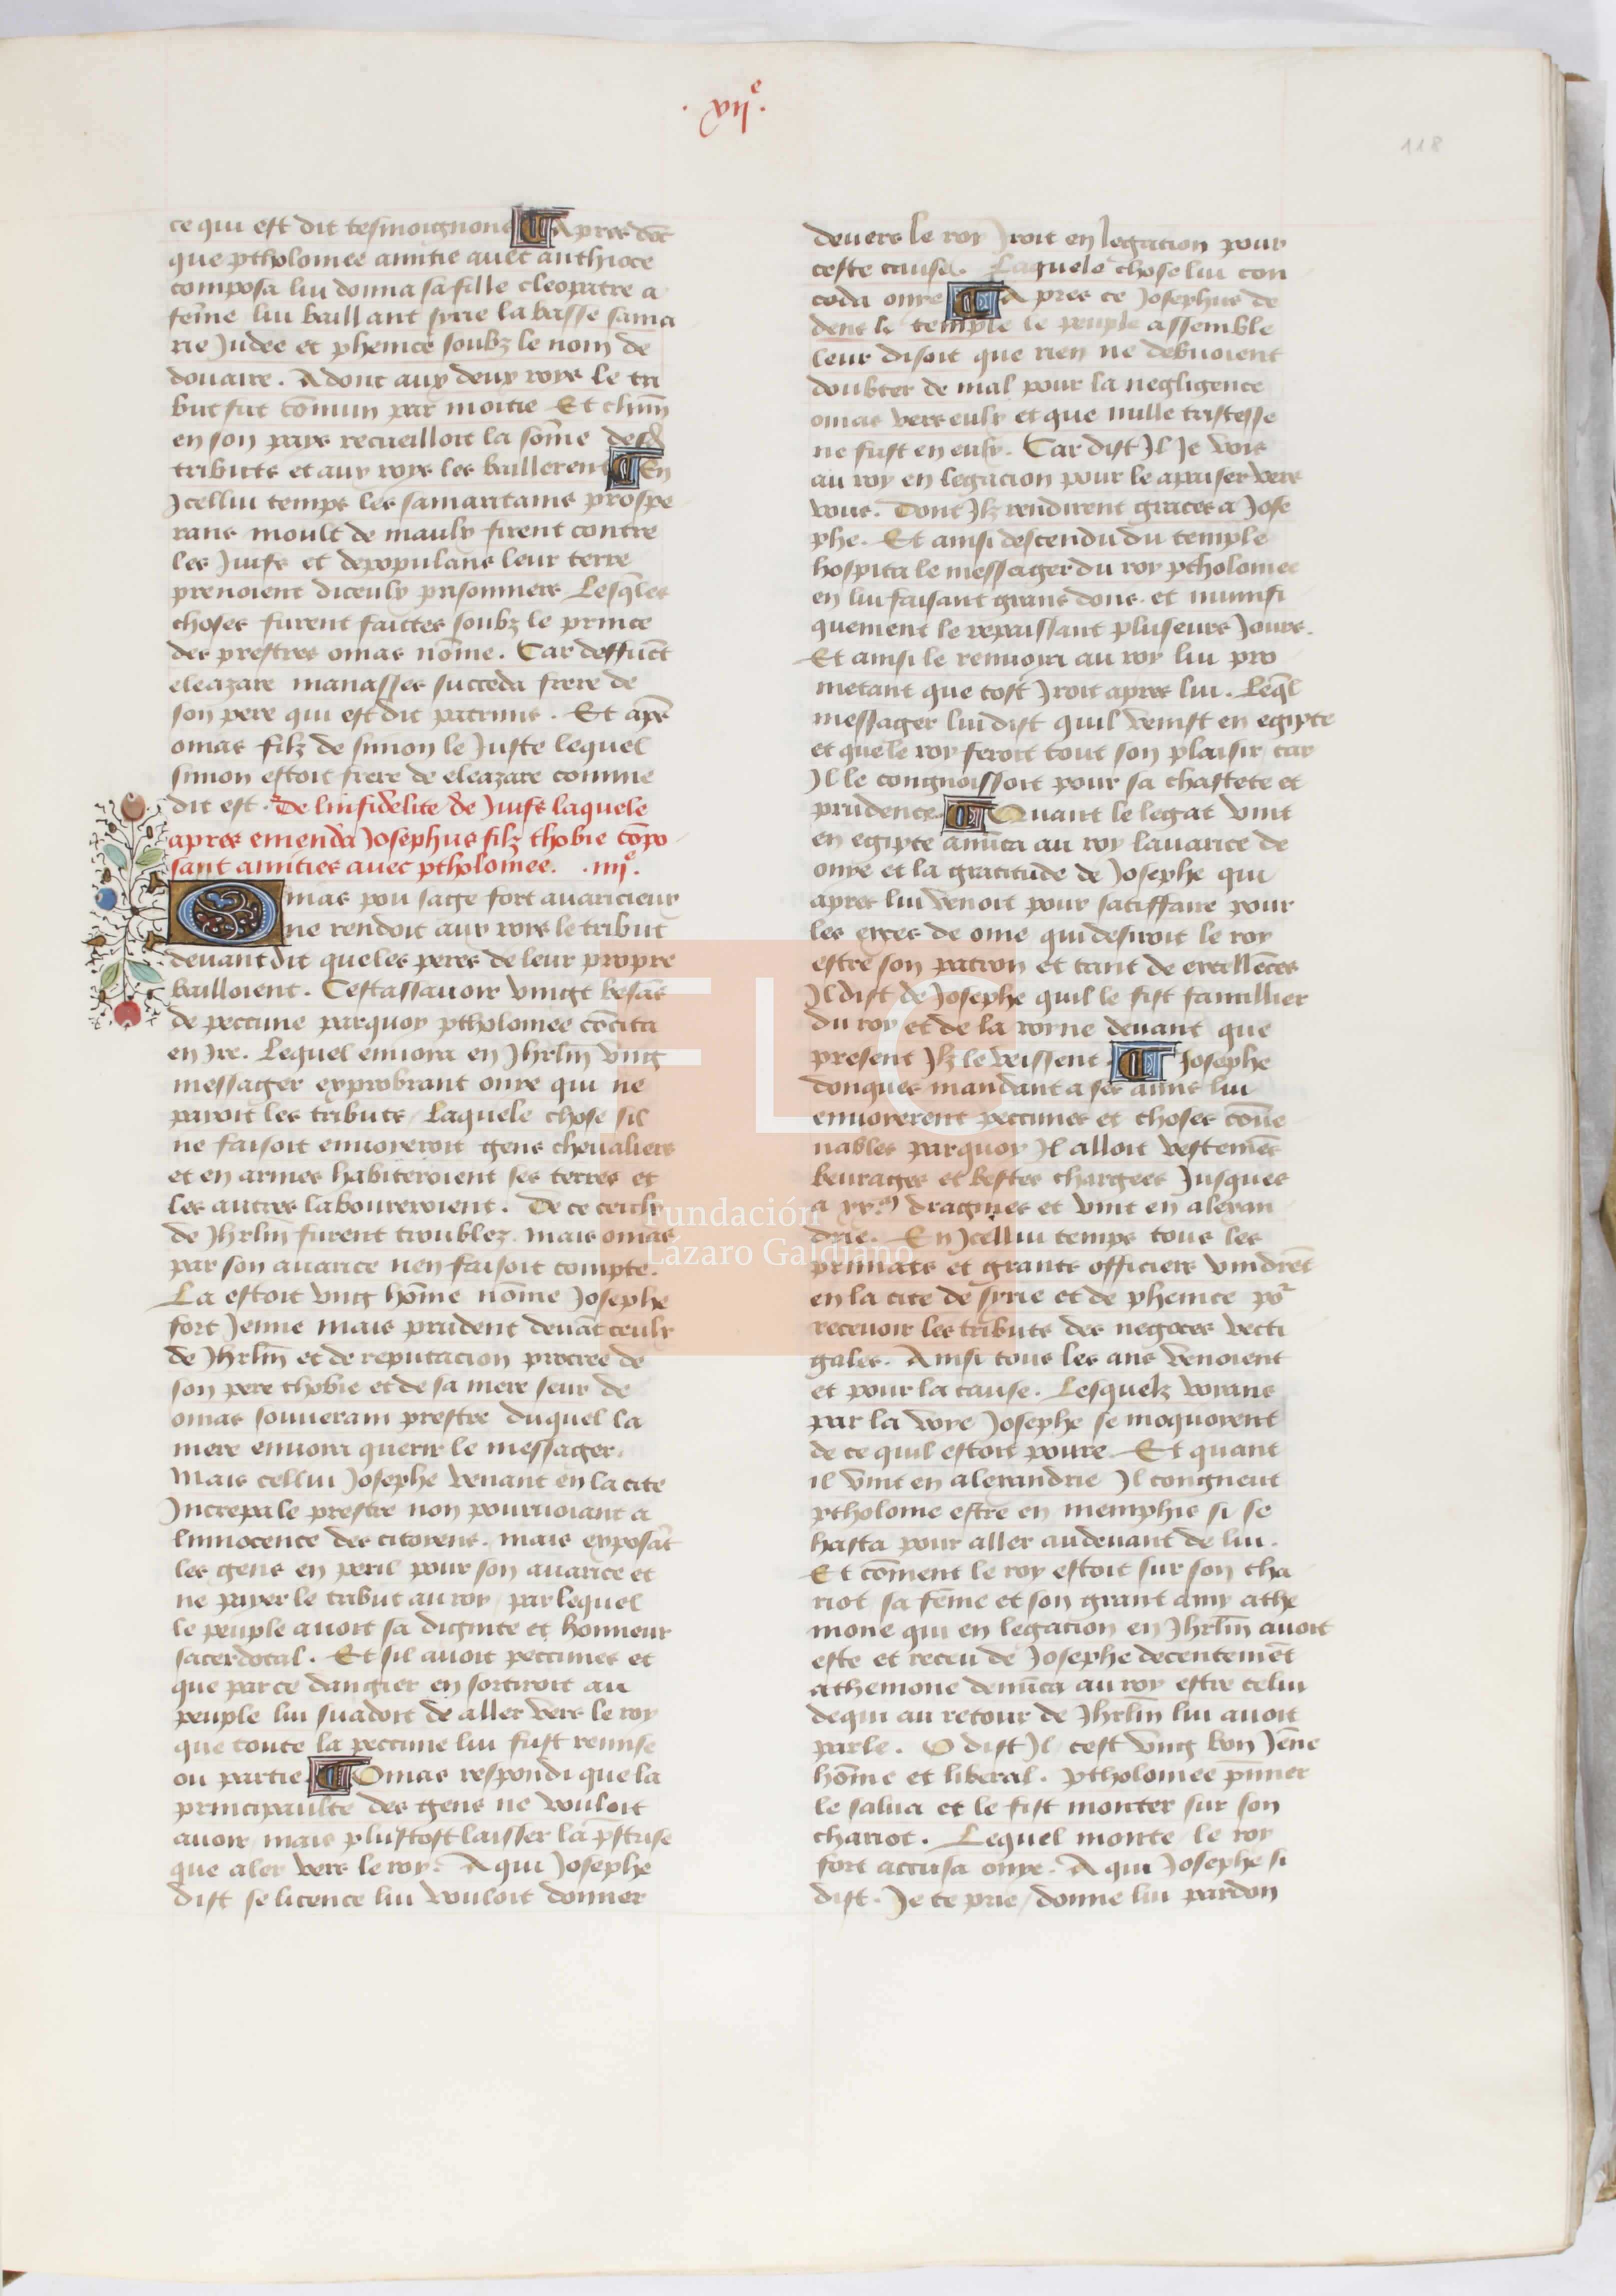 .xij.e
118
ce qui est dit tesmoignons Apres dōc
que ptholomee amitie auec anthioce
composa lui donna sa fille cleopatre a
fēme lui baillant syrie la basse sama
rie Judee et phenice soubz le nom de
douaire. Adonc aux deux roys le tri
but fut cōmun par moitie Et chūn
en son pays recueilloit la sōme desd
tributs et aux roys les baillerent En
Jcellui temps les samaritains prospe
rans moult de maulx firent contre
les Juifs et depopulans leur terre
prenoient diceulx prisonniers Lesq̄les
choses furent faictes soubz le prince
des prestres omas nōme. Car deffunct
eleazare manasses succeda frere de
son pere qui est dit patruus. Et apr̄s
omas filz de simon le Juste lequel
simon estoit frere de eleazare comme
dit est. De linfidelite de Juifs laquele
apres emenda Josephus filz thobie cōpo
sant amities auec ptholomee. .iiij.e
Omas pou sage fort auaricieux
ne rendoit aux roys le tribut
deuant dit que les peres de leur propre
bailloient. Cestassauoir vingt besās
de peccune parquoy ptholomee cōcita
en Jre. Lequel enuoia en Jhrl̄m vng
messager exprobrant onye qui ne
paioit les tributs Laquele chose sil
ne faisoit enuoyeroit gens cheualiers
et en armes habiteroient ses terres et
les autres laboureroient. De ce ceulx
de Jhrl̄m furent troublez. mais omas
par son auarice nen faisoit compte.
La estoit vng hōme nōme Josephe
fort Jenne mais prudent deuāt ceulx
de Jhrl̄m et de reputacion procree de
son pere thobie et de sa mere seur de
omas souuerain prestre duquel la
mere enuoia querir le messager.
Mais cellui Josephe venant en la cite
Increpa le prestre non pouruoiant a
linnocence des citoyens. mais exposāt
les gens en peril pour son auarice et
ne payer le tribut au roy par lequel
le peuple auoit sa dignite et honneur
sacerdotal. Et sil auoit peccunes et
que par ce dangier en sortiroit au
peuple lui suadoit de aller vers le roy
que toute la peccune lui fust remise
ou partie Omas respondi que la
principaulte des gens ne vouloit
auoir mais plustost laisser la p̄strise
que aler vers le roy. A qui Josephe
dist se licence lui vouloit donner
deuers le roy Jroit en legacion pour
ceste cause. Laquele chose lui con
ceda onye Apres ce Josephus de
dens le temple le peuple assemble
leur disoit que rien ne debuoient
doubter de mal pour la negligence
omas vers eulx et que nulle tristesse
ne fust en eulx. Car dist Jl Je vois
au roy en legacion pour le apaiser vers
vous. Dont Jlz rendirent graces a Jose
phe. Et ainsi descendu du temple
hospita le messager du roy ptholomee
en lui faisant grans dons. et munifi
quement le repaissant pluseurs Jours.
Et ainsi le renuoya au roy lui pro
metant que tost Jroit apres lui. Leq̄l
messager lui dist quil venist en egipte
et que le roy feroit tout son plaisir car
Jl le congnoissoit pour sa chastete et
prudence. Quant le legat vint
en egipte annūca au roy lauarice de
onye et la gratitude de Josephe qui
apres lui venoit pour satiffaire pour
les exces de onie qui desiroit le roy
estre son patron et tant de excellēces
Jl dist de Josephe quil le fist familier
du roy et de la royne deuant que
present Jlz le veissent. Josephe
donques mandant a ses amis lui
enuoyerent peccunes et choses cōue
nables parquoy Jl alloit vestemēs
beurages et bestes chargees Jusques
a xx.m dragmes et vint en alexan
drie. En Jcellui temps tous les
primats et grants officiers vindrēt
en la cite de syrie et de phenice po2
receuoir les tributs des negoces vecti
gales. Ainsi tous les ans venoient
et pour la cause. Lesquelz voians
par la voye Josephe se moquoient
de ce quil estoit poure. Et quant
il vint en alexandrie Jl congneut
ptholome estre en memphis si se
hasta pour aller audeuant de lui.
Et cōment le roy estoit sur son cha
riot sa fēme et son grant amy athe
mone qui en legacion en Jhrl̄m auoit
este et receu de Josephe decentemēt
athemone denūca au roy estre celui
de qui au retour de Jhrl̄m lui auoit
parle. O dist Jl cest vng bon Jēne
hōme et liberal. Ptholomee p̄mier
le salua et le fist monter sur son
chariot. Lequel monte le roy
fort accusa onye. A qui Josephe si
dist. Je te prie donne lui pardon
FLG
Fundación
Lázaro Galdiano